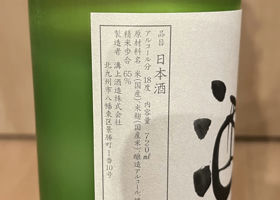 品目 日本酒
アルコール分 18度 内容量 720ml
原材料名 米(国産)・米麹(国産米)・醸造アルコール
精米歩合 65%
製造者 溝上酒造株式会社
北九州市八幡東区景勝町1番10号
酒